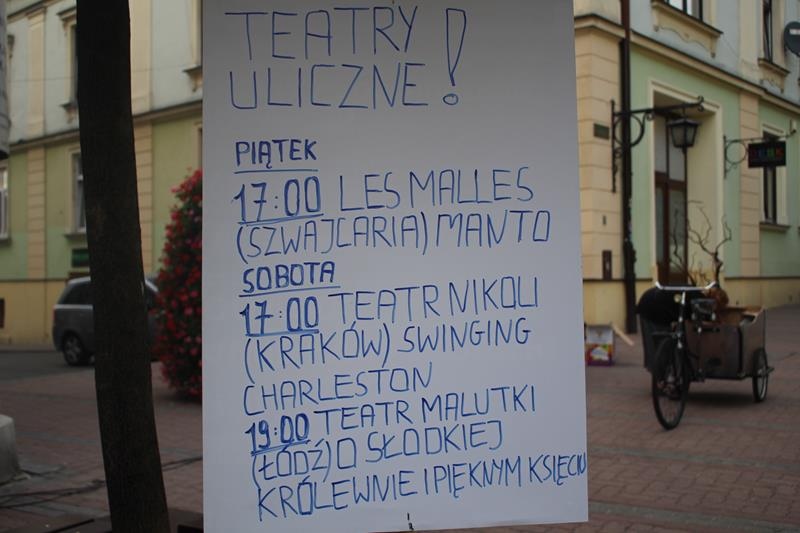 TEATRY
ULICZNE!
PIĄTEK
17:00 LES MALLES
(SZWAJCARIA) MANTO
SOBOTA
17:00 TEATR NIKOLI
(KRAKÓW) SWINGING
CHARLESTON
19:00 TEATR MALUTKI
(ŁÓDŹ) O SŁODKIEJ
KRÓLEWNIE I PIĘKNYM KSIĘCIU